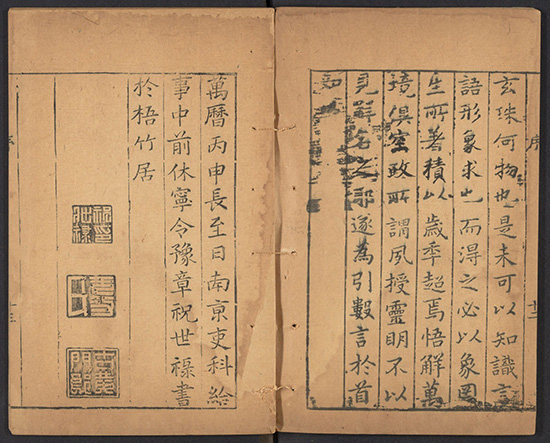 序
玄珠何物也是未可以知識言
語形象求也而得之必以象罔
生所著積以歲季超焉悟解萬
境俱空政所謂夙授靈明不以
見解名之耶遂為引數言於首
萬曆丙申長至日南京吏科給
事中前休寧令豫章祝世祿書
於梧竹居